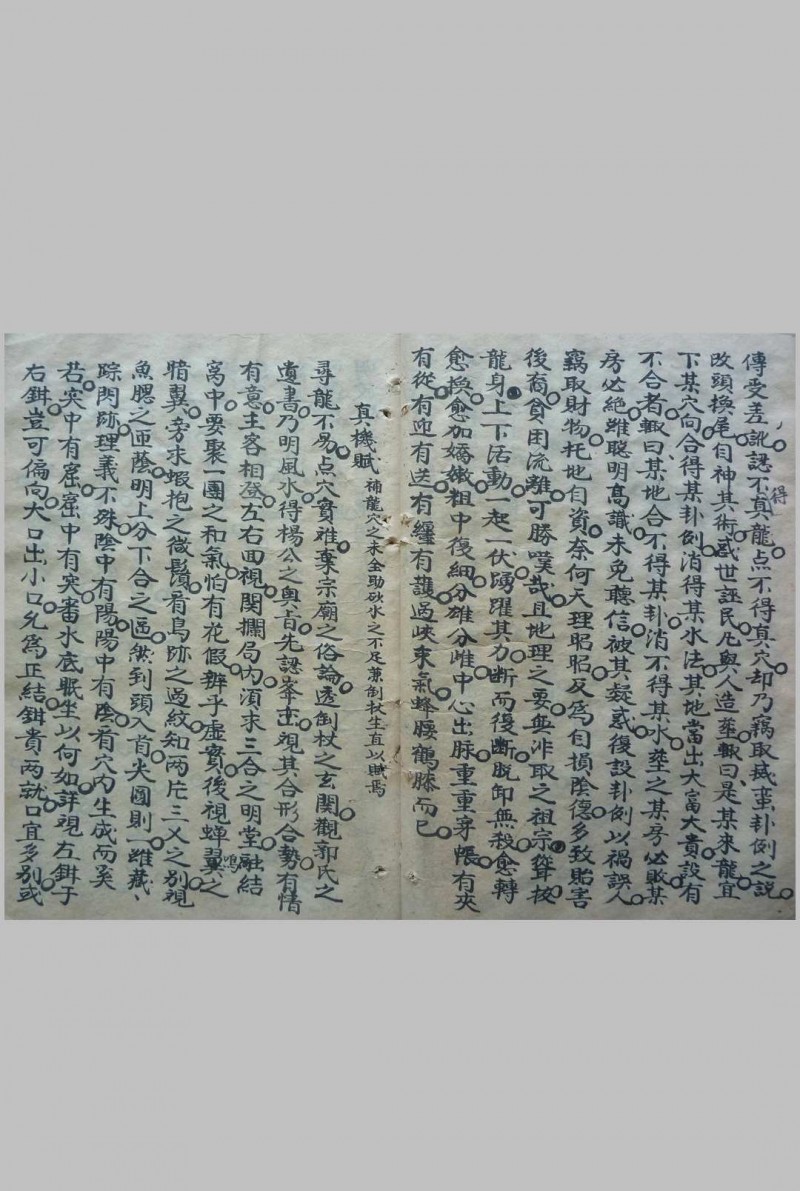 傳受差訛認不真龍点不得真穴却乃竊取滅蛮卦例之說
得
改頭換尾自神其術惑世誣民凡與人造塟輙曰是某來龍宜
下某穴向合得某卦例消得某水法其地當出大富大貴設有
不合者輙曰某地合不得某卦消不得某水塟之某房必敗某
房必絶雖聰明高識未免聽信被其疑惑復設卦例以禍誤人
竊取財物托地自資奈何天理昭昭反為自損陰德多致貽害
後裔貧困流離可勝嘆哉且地理之要無非取之祖宗聳拔
龍身上下活動一起一伏踴躍其力断而復断脫卸無殺愈轉
愈換愈加嬌嫩粗中復細分雄分雌中心出脉重重穿帳有夾
有從有迎有送有纏有護過峽束氣蜂腰鶴膝而已
真機賦 補龍穴之未全助砂水之不足兼倒杖生直以賦焉
尋龍不易点穴實难棄宗廟之俗論透倒杖之玄関觀郭氏之
遺書乃明風水得楊公之奥旨先認峯巒視其合形合勢有情
有意主客相登左右回視関攔局內須求三合之明堂融結
窩中要聚一團之和氣怕有花假辨乎虛實後視蟬翼之
鳴
暗翼旁求蝦抱之微鬚看鳥跡之過紋知两片三乂之別視
魚腮之匝蔭明上分下合之逥然到頭入首尖圓則一雖藏
踪閃跡理義不殊陰中有陽陽中有陰看穴內生成而奚
若突中有窟窟中有突審水底眠坐以何如詳視左鉗于
右鉗豈可偏向大口出小口允為正結鉗貴两就口宜多別或